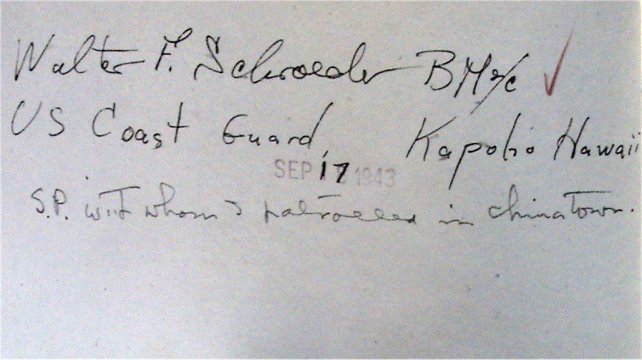 Walter F. Schroeder BM2/c ✓
US Coast Guard, Kapoho Hawaii
SEP 17 1943
S.P. with whom I patrolled in Chinatown.